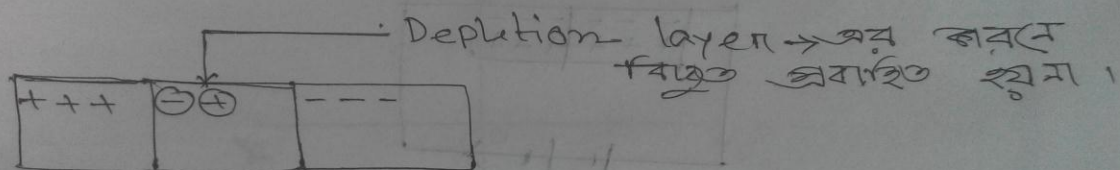 Depletion layer → এর কারনে
বিদ্যুত প্রবাহিত হয় না।
+ + + ⊖ ⊕ - - -